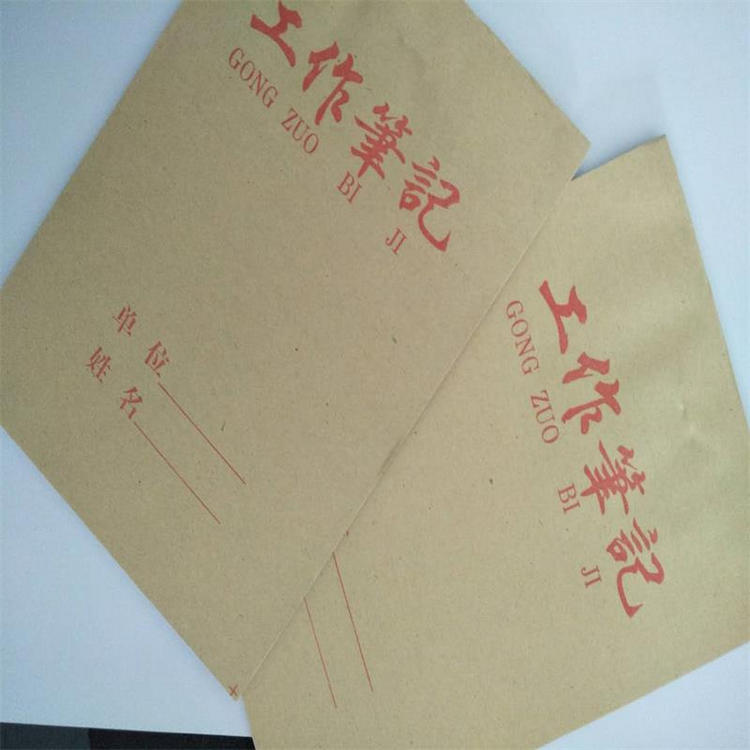 工作筆記
GONG ZUO BI JI
单位
姓名
工作筆記
GONG ZUO BI JI